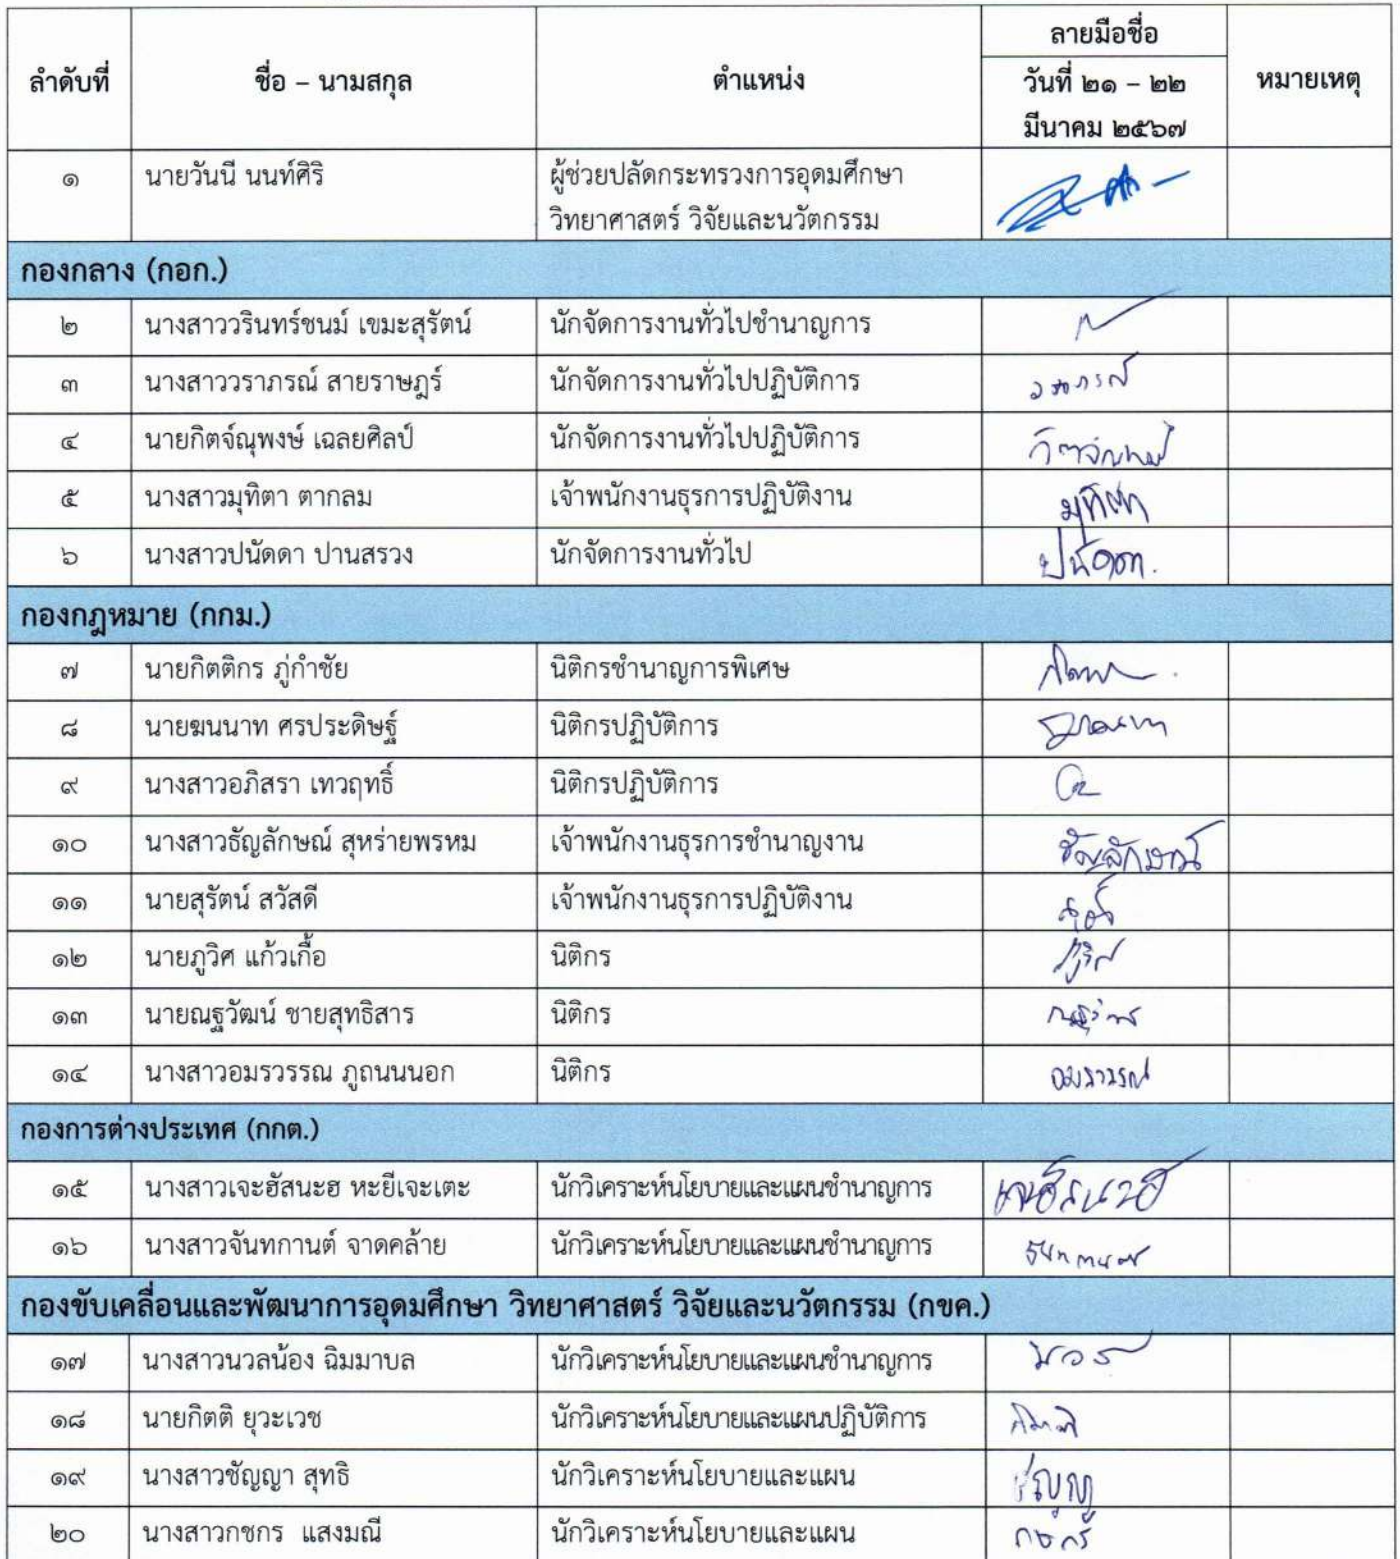 ลำดับที่ ชื่อ – นามสกุล ตำแหน่ง ลายมือชื่อ หมายเหตุ
วันที่ ๒๑ – ๒๒
มีนาคม ๒๕๖๗
๑ นายวันนี นนท์ศิริ ผู้ช่วยปลัดกระทรวงการอุดมศึกษา
วิทยาศาสตร์ วิจัยและนวัตกรรม
กองกลาง (กอก.)
๒ นางสาววรินทร์ชนม์ เขมะสุรัตน์ นักจัดการงานทั่วไปชำนาญการ
๓ นางสาววราภรณ์ สายราษฎร์ นักจัดการงานทั่วไปปฏิบัติการ วราภรณ์
๔ นายกิตจ์ณุพงษ์ เฉลยศิลป์ นักจัดการงานทั่วไปปฏิบัติการ
๕ นางสาวมุทิตา ตากลม เจ้าพนักงานธุรการปฏิบัติงาน มุทิตา
๖ นางสาวปนัดดา ปานสรวง นักจัดการงานทั่วไป ปนัดดา.
กองกฎหมาย (กกม.)
๗ นายกิตติกร ภู่กำชัย นิติกรชำนาญการพิเศษ
๘ นายฆนนาท ศรประดิษฐ์ นิติกรปฏิบัติการ
๙ นางสาวอภิสรา เทวฤทธิ์ นิติกรปฏิบัติการ
๑๐ นางสาวธัญลักษณ์ สุหร่ายพรหม เจ้าพนักงานธุรการชำนาญงาน ธัญลักษณ์
๑๑ นายสุรัตน์ สวัสดี เจ้าพนักงานธุรการปฏิบัติงาน
๑๒ นายภูวิศ แก้วเกื้อ นิติกร ภูวิศ
๑๓ นายณฐวัฒน์ ชายสุทธิสาร นิติกร
๑๔ นางสาวอมรวรรณ ภูถนนนอก นิติกร อมรวรรณ
กองการต่างประเทศ (กกต.)
๑๕ นางสาวเจะฮัสนะฮ หะยีเจะเตะ นักวิเคราะห์นโยบายและแผนชำนาญการ
๑๖ นางสาวจันทกานต์ จาดคล้าย นักวิเคราะห์นโยบายและแผนชำนาญการ จันทกานต์
กองขับเคลื่อนและพัฒนาการอุดมศึกษา วิทยาศาสตร์ วิจัยและนวัตกรรม (กขค.)
๑๗ นางสาวนวลน้อง ฉิมมาบล นักวิเคราะห์นโยบายและแผนชำนาญการ
๑๘ นายกิตติ ยุวะเวช นักวิเคราะห์นโยบายและแผนปฏิบัติการ กิตติ
๑๙ นางสาวชัญญา สุทธิ นักวิเคราะห์นโยบายและแผน ชัญญา
๒๐ นางสาวกชกร แสงมณี นักวิเคราะห์นโยบายและแผน กชกร